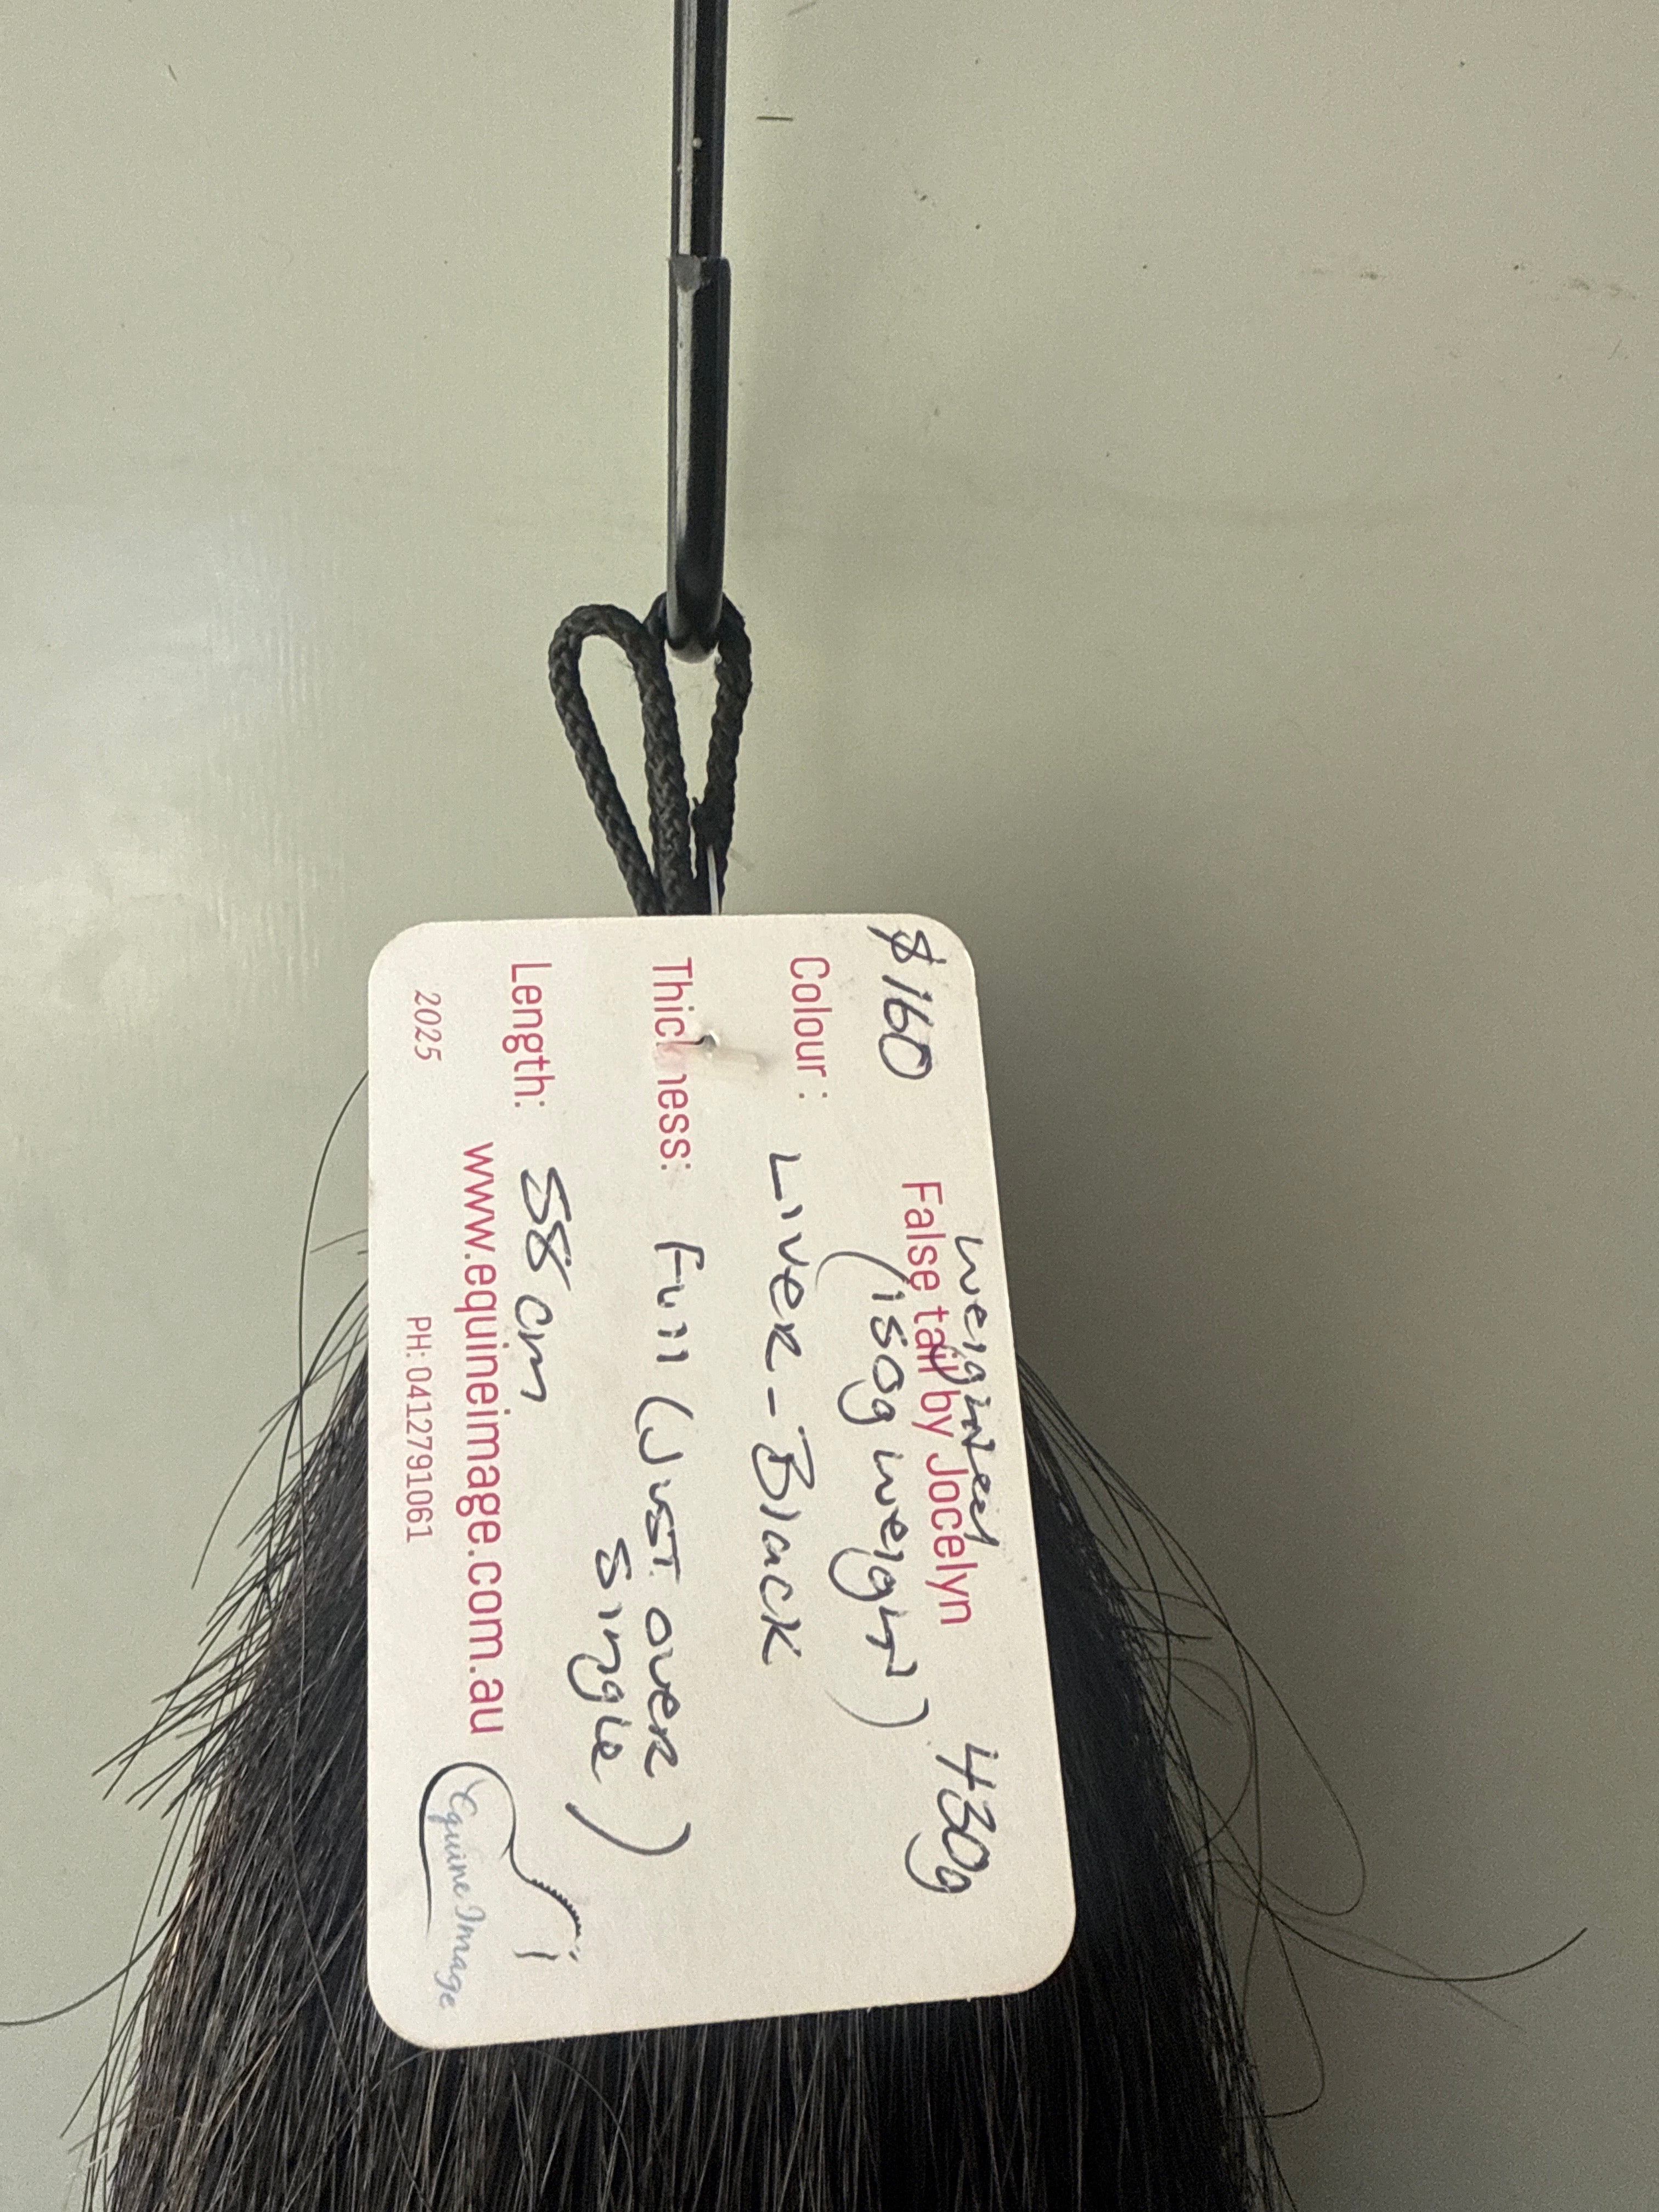 weighted 430g
$160 False tail by Jocelyn
(150g weight)
Colour: Liver-Black
Thickness: Full (Just over
single)
Length: 58cm
www.equineimage.com.au
2025 PH: 0412791061
Equine Image